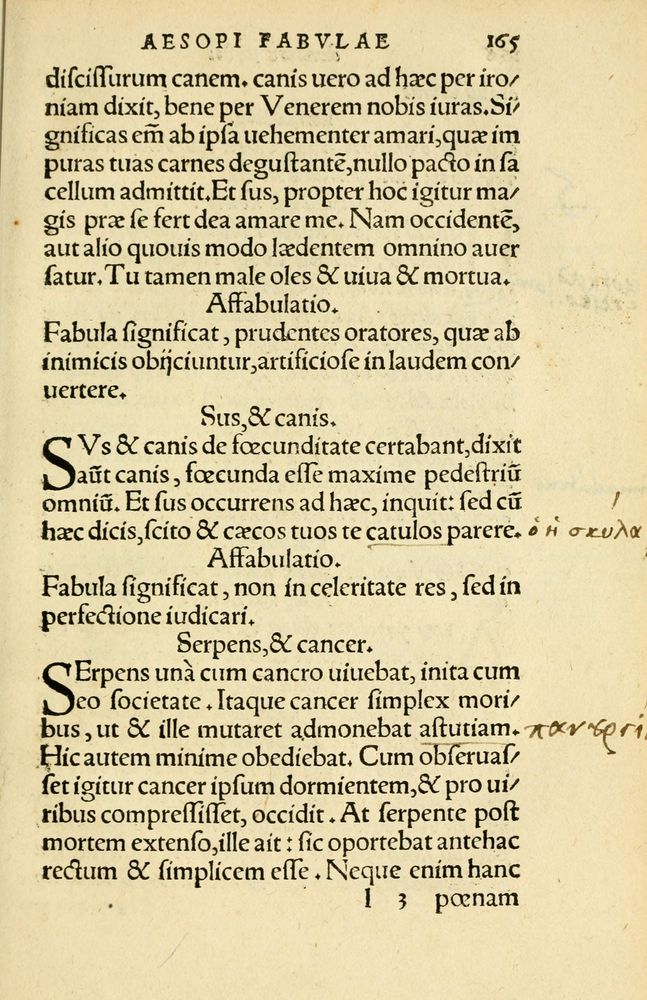 AESOPI FABVLAE 165
diſciſſurum canem. canis uero ad hæc per iro/
niam dixit, bene per Venerem nobis iuras. Si/
gnificas em̃ ab ipſa uehementer amari, quæ im
puras tuas carnes deguſtantẽ, nullo pacto in ſa
cellum admittit. Et ſus, propter hoc igitur ma/
gis præ ſe fert dea amare me. Nam occidentẽ,
aut alio quouis modo lædentem omnino auer
ſatur. Tu tamen male oles & uiua & mortua.
Affabulatio.
Fabula ſignificat, prudentes oratores, quæ ab
inimicis obijciuntur, artificioſe in laudem con/
uertere.
Sus, & canis.
SVs & canis de fœcunditate certabant, dixit
aũt canis, fœcunda eſſe maxime pedeſtriũ
omniũ. Et ſus occurrens ad hæc, inquit: ſed cũ
hæc dicis, ſcito & cæcos tuos te catulos parere. ὁ ἡ σκύλα
Affabulatio.
Fabula ſignificat, non in celeritate res, ſed in
perfectione iudicari.
Serpens, & cancer.
SErpens unà cum cancro uiuebat, inita cum
eo ſocietate. Itaque cancer ſimplex mori/
bus, ut & ille mutaret admonebat aſtutiam. πανȣργί
Hic autem minime obediebat. Cum obſeruaſ/
ſet igitur cancer ipſum dormientem, & pro ui/
ribus compreſſiſſet, occidit. At ſerpente poſt
mortem extenſo, ille ait: ſic oportebat antehac
rectum & ſimplicem eſſe. Neque enim hanc
I 3 pœnam